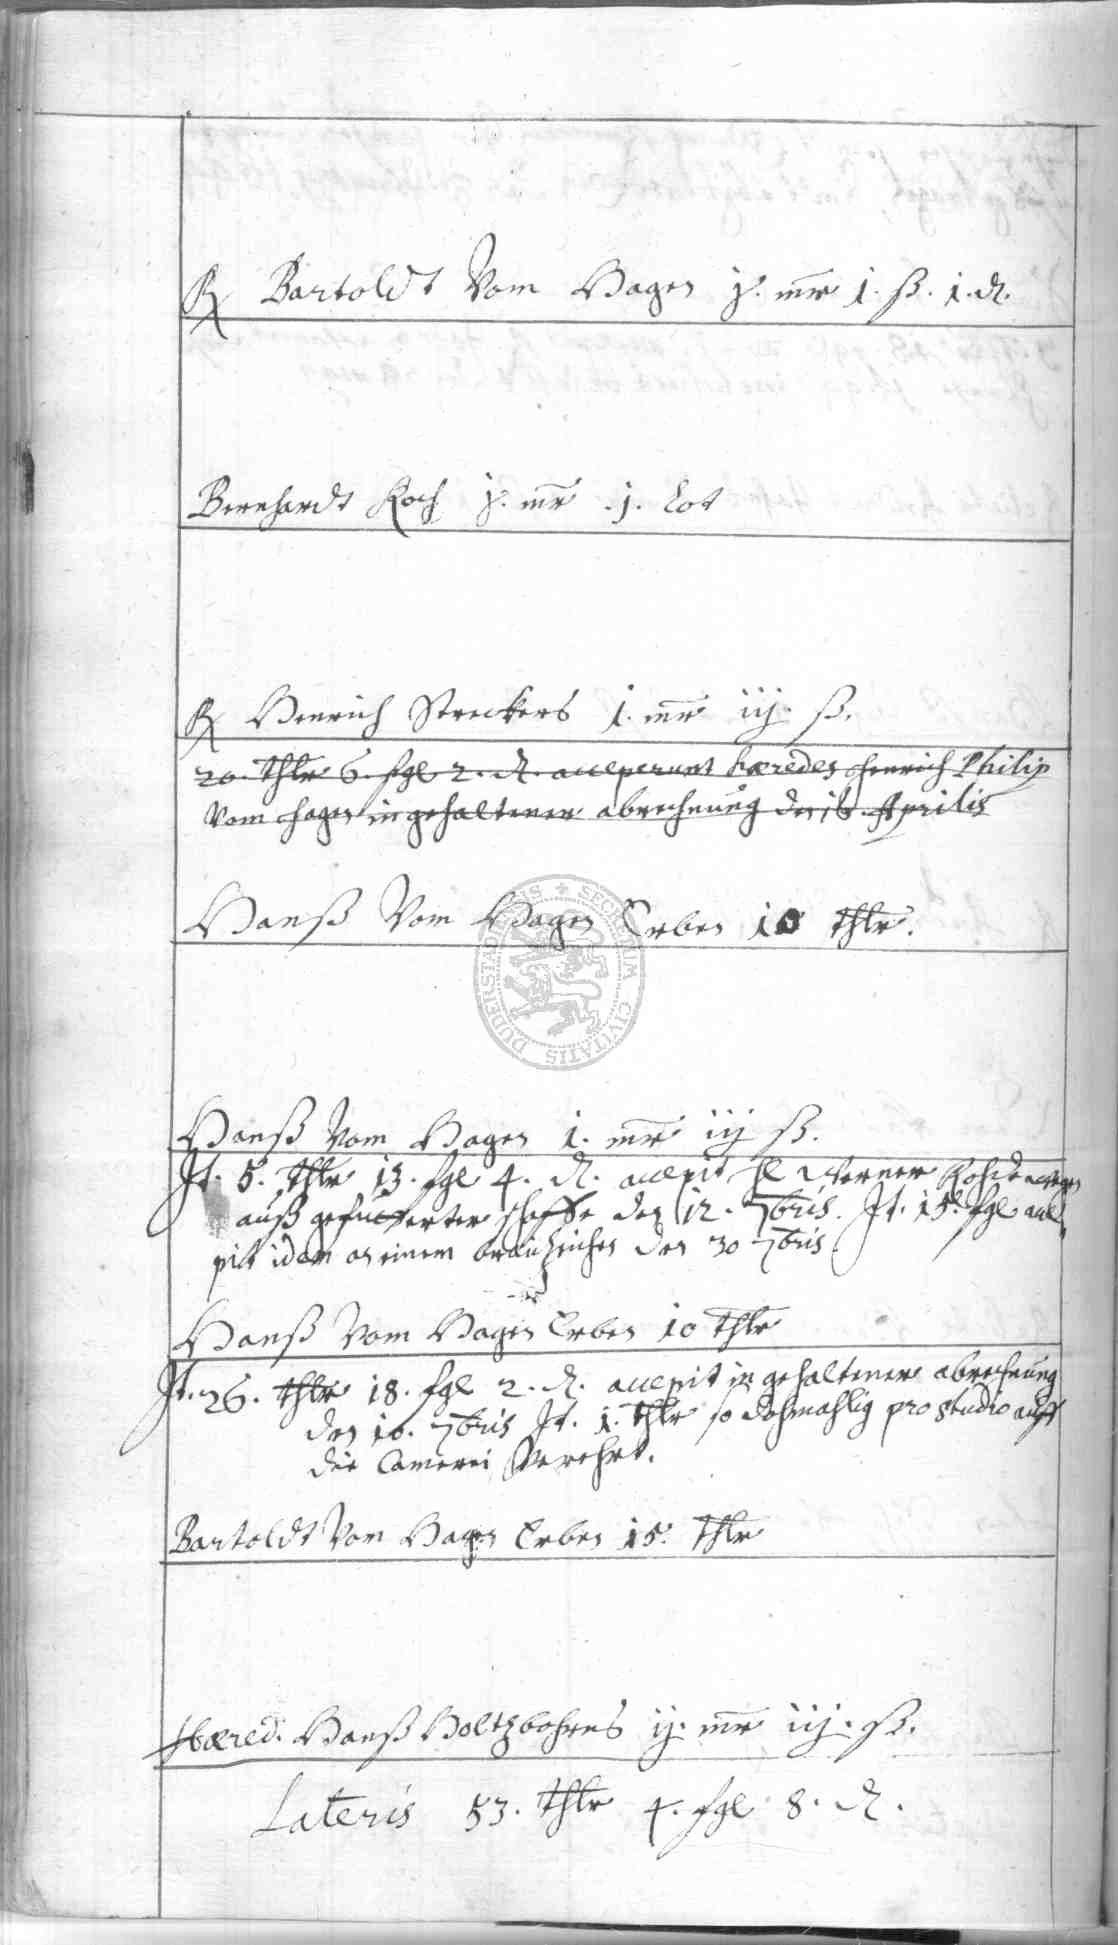 Bartoldt Vom Hagen j. mr 1. ß. 1. d.
Bernhardt Koch j. mr j. Lot
Henrich Streckers j. mr iij. ß.
20. thlr 6. fgl 2. d. acceperunt hæredes Henrich Philip
Vom Hagen in gehaltener abrechnung den 16. Aprilis
Hanß Vom Hagen Erben 10 thlr.
SECRETUM CIVITATIS DUDERSTADENSIS
Hanß Vom Hagen 1. mr iij ß.
It. 5. thlr 13. fgl 4. d. accepit H Werner Rohde wegen
auß den 12. 7bris. It. 15. fgl acce
pit idem an einem den 30 7bris
Hanß Vom Hagen Erben 10 thlr
It. 26. thlr 18. fgl 2. d. accepit in gehaltener abrechnung
den 10. 7bris It. 1. thlr so dohmahlig pro studio auff
die Camerei Verehrt.
Bartoldt Vom Hagen Erben 15. thlr
Hæred. Hanß Holtzbohrns ij. mr iij. ß.
Lateris 53. thlr 4. fgl 8. d.